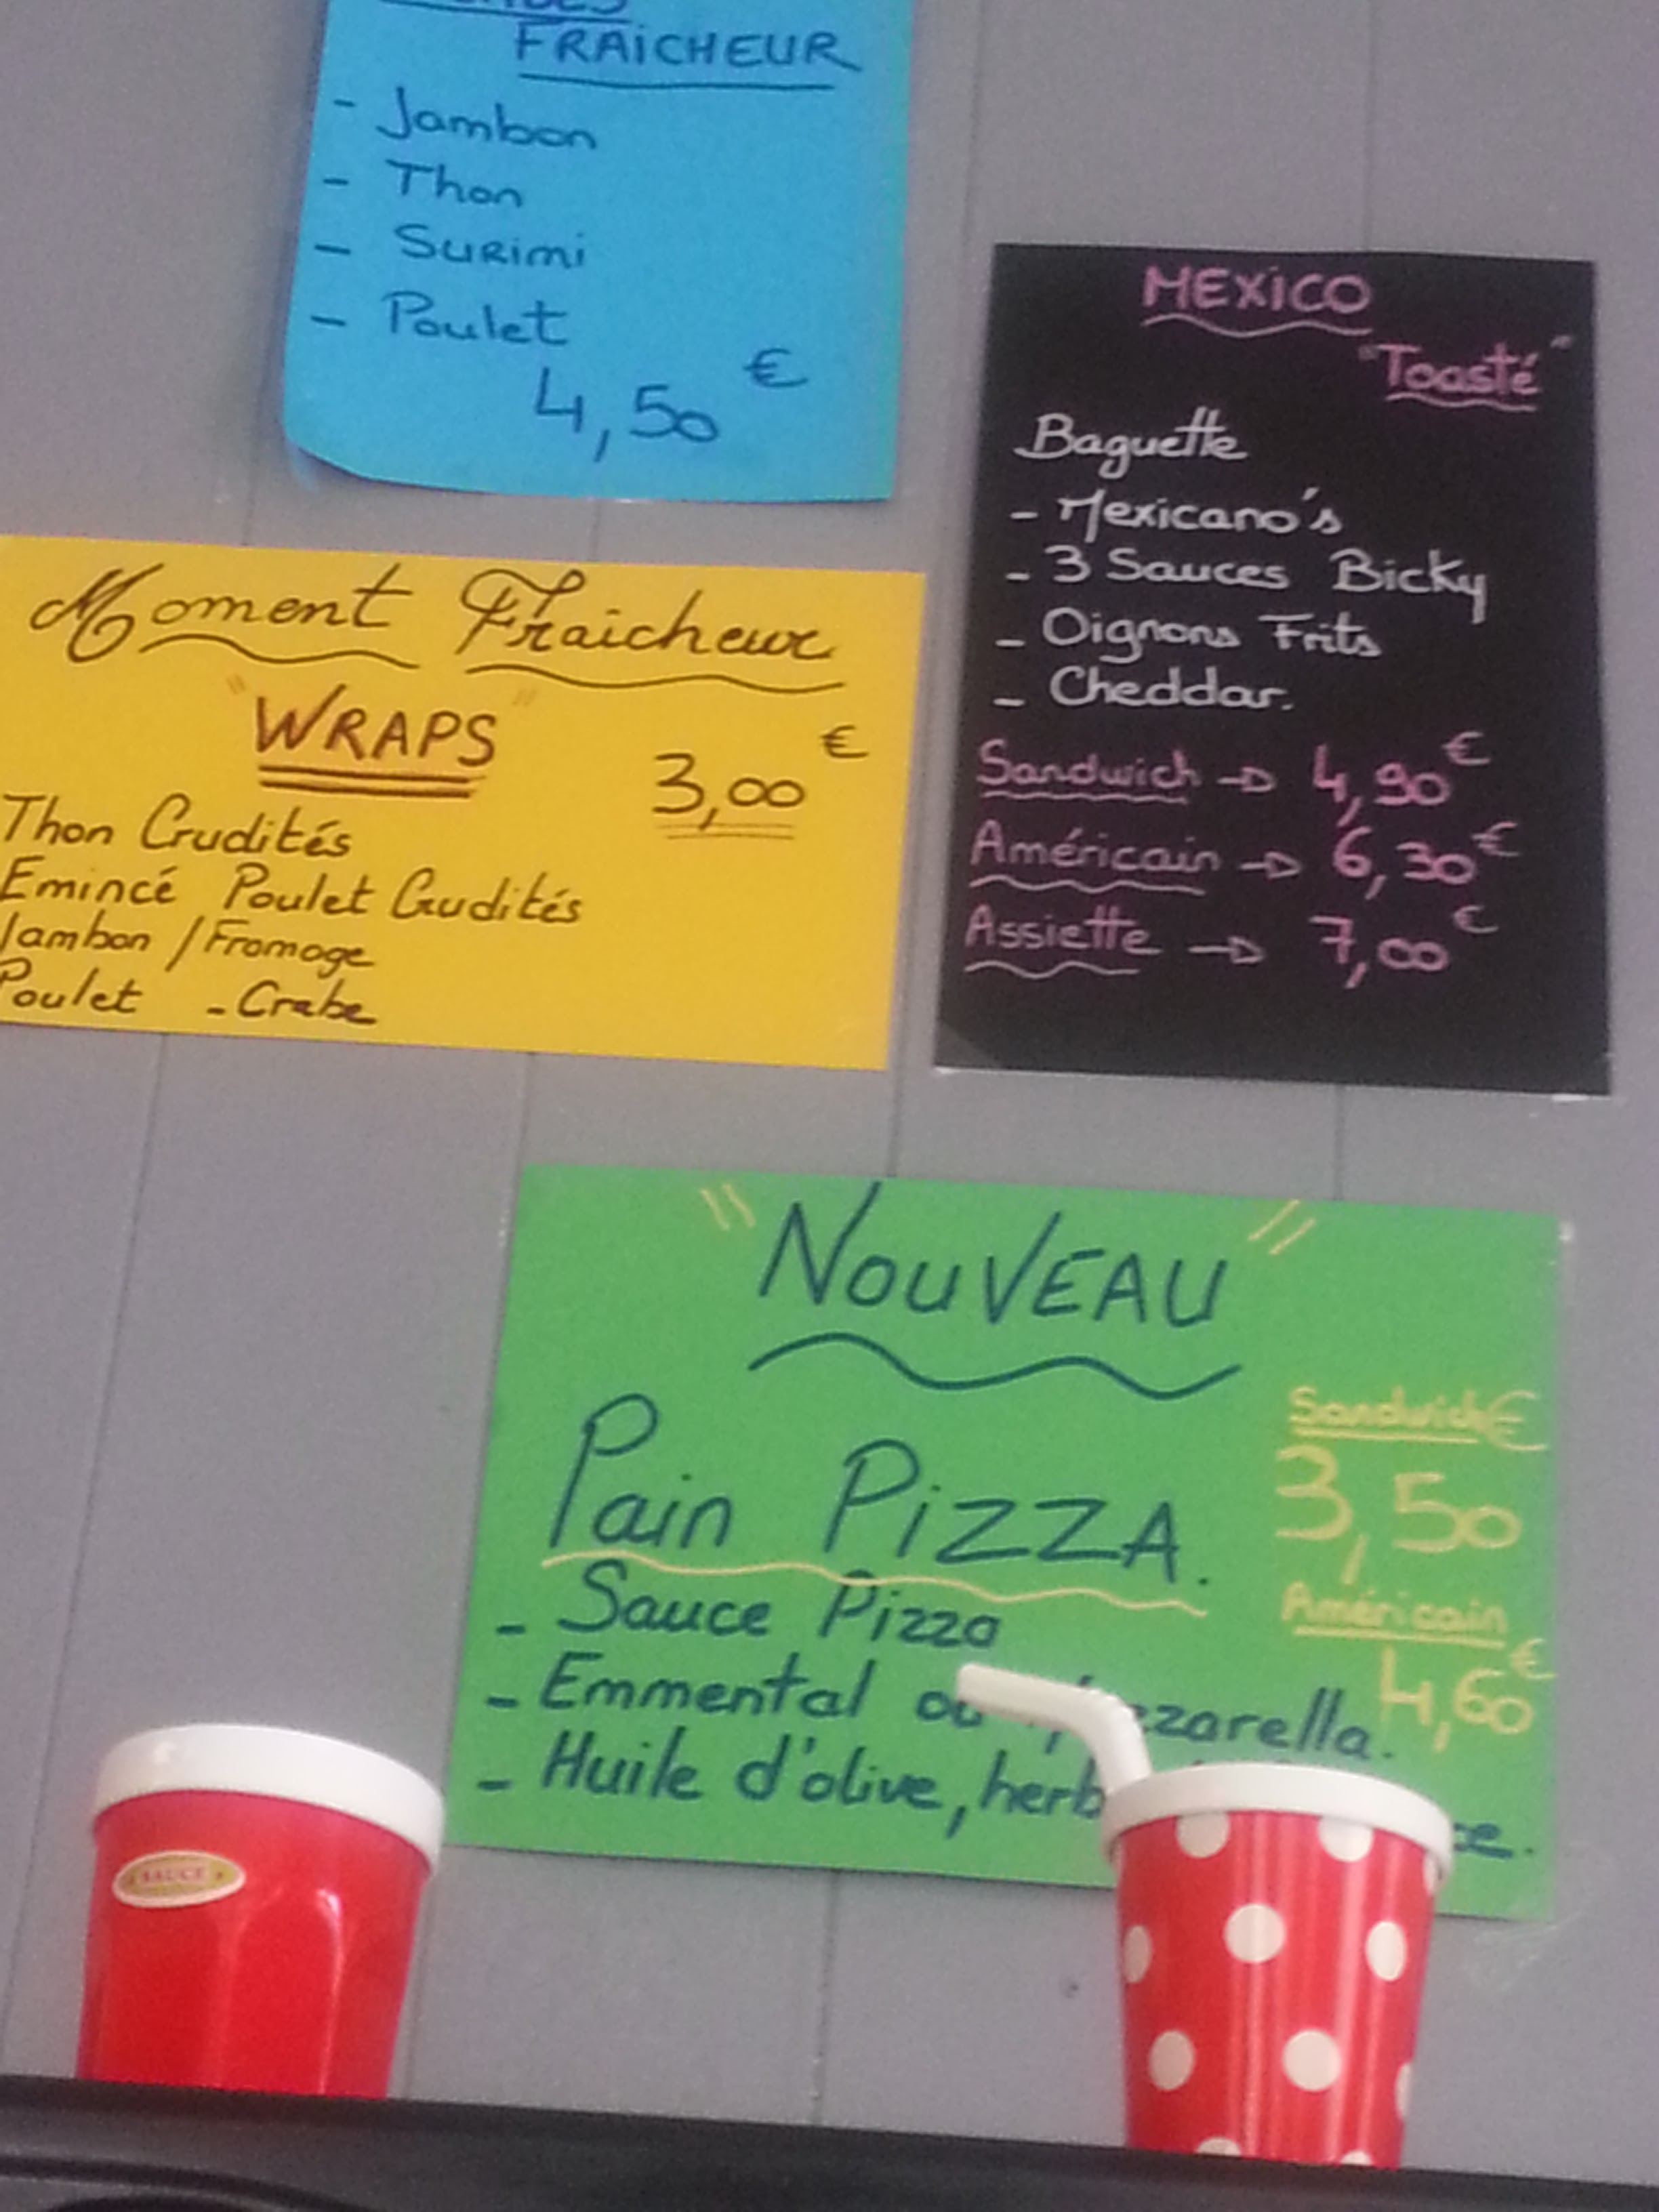 FRAICHEUR
- Jambon
- Thon
- Surimi
- Poulet
4,50 €
MEXICO
"Toasté"
Baguette
- Mexicano's
- 3 Sauces Bicky
- Oignons Frits
- Cheddar.
Sandwich → 4,90€
Américain → 6,30€
Assiette → 7,00€
Moment Fraicheur
"WRAPS"
3,00 €
Thon Crudités
Emincé Poulet Crudités
Jambon / Fromage
Poulet - Crabe
"NOUVEAU"
Pain PIZZA.
- Sauce Pizza
- Emmental ou
- Huile d'olive,
Sandwich €
3,50
Américain
4,60€
SAUCE